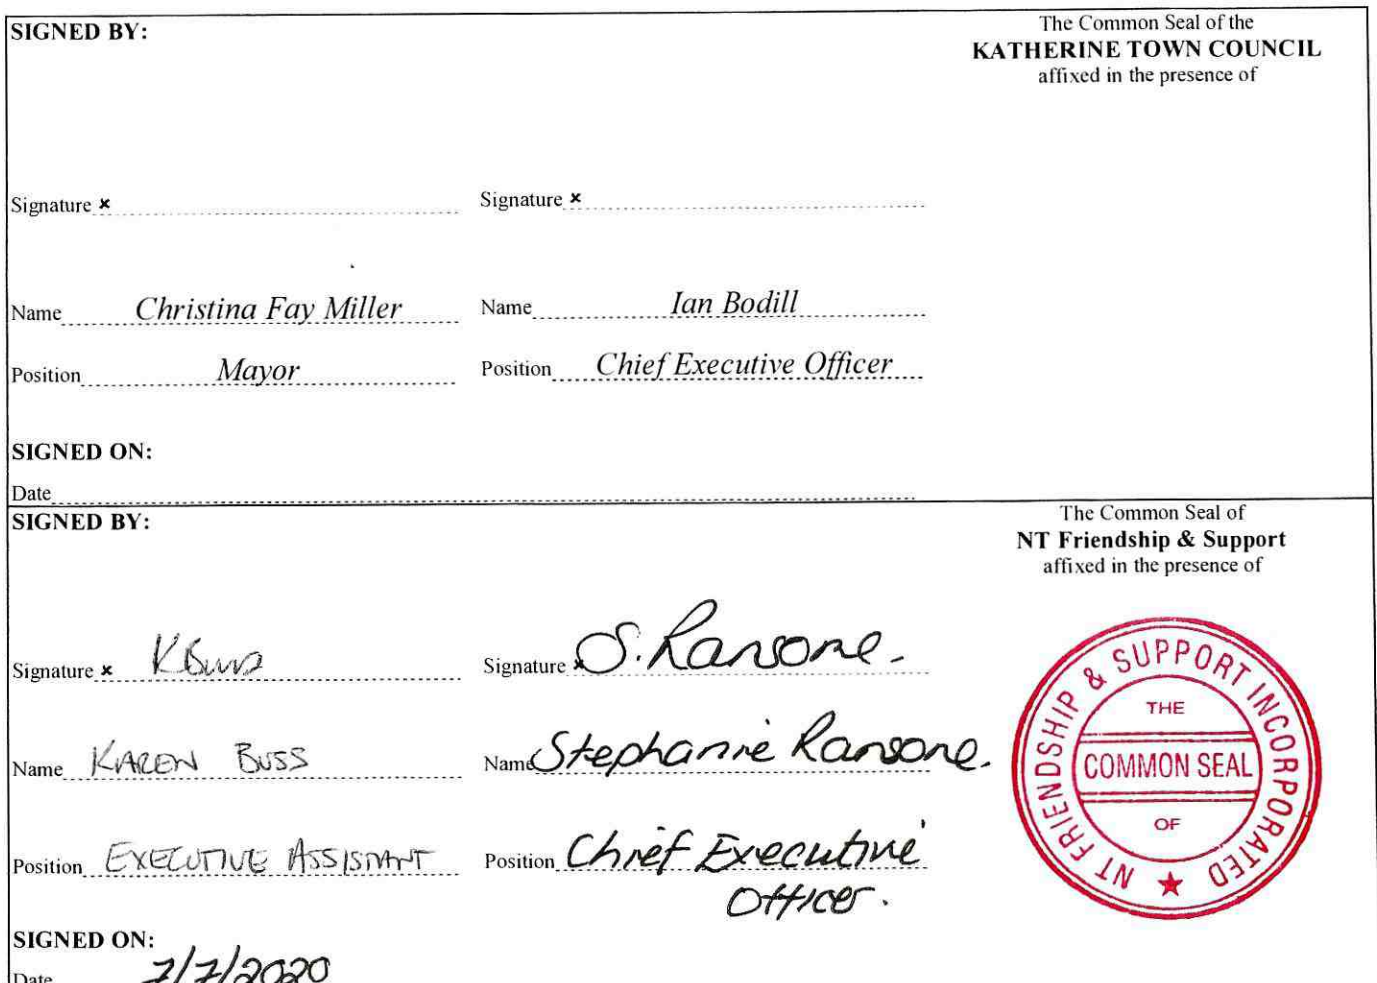 SIGNED BY:
The Common Seal of the
KATHERINE TOWN COUNCIL
affixed in the presence of
Signature × Signature ×
Name Christina Fay Miller Name Ian Bodill
Position Mayor Position Chief Executive Officer
SIGNED ON:
Date
SIGNED BY:
The Common Seal of
NT Friendship & Support
affixed in the presence of
Signature × KBuss Signature × S. Ransone.
Name KAREN BUSS Name Stephanie Ransone.
Position EXECUTIVE ASSISTANT Position Chief Executive
Officer.
NT FRIENDSHIP & SUPPORT INCORPORATED
THE
COMMON SEAL
OF
SIGNED ON:
Date 7/7/2020